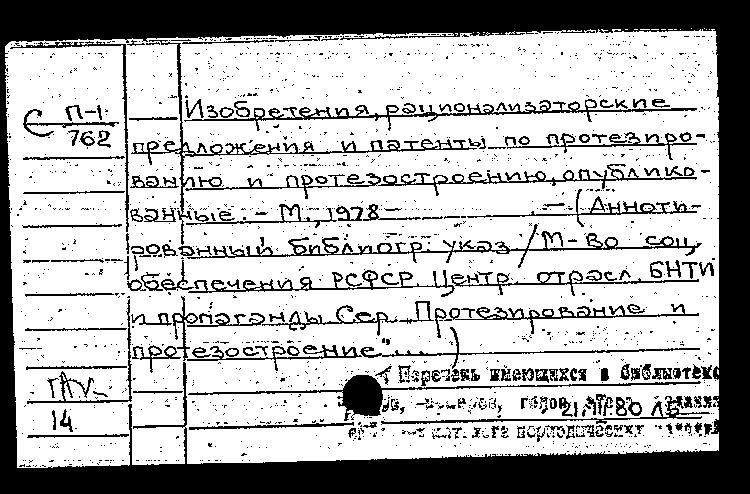 С П-1
762
Изобретения, рационализаторские
предложения и патенты по протезиро-
ванию и протезостроению, опублико-
ванные. - М., 1978 - . - (Анноти-
рованный библиогр. указ / М-во соц.
обеспечения РСФСР. Центр. отрасл. БНТИ
и пропаганды Сер. „Протезирование и
протезостроение"...)
Перечень имеющихся в библиотеке
14
21.III.80
каталога периодических изданий